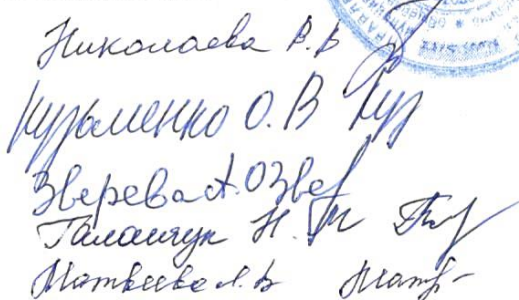 Николаева В.В
Кузьменко О.В Куз
Зверева А.О Звер
Галанчук Н.
Матвеева Л.В Матв-